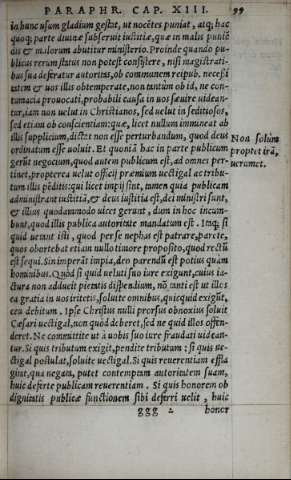 PARAPHR. CAP. XIII. 99
in hunc usum gladium gestat, ut nocētes puniat, atq; hac
quoq; parte diuinæ subseruit iustitiæ, quæ in malis puniē
dis & malorum abutitur ministerio. Proinde quando pu-
blicus rerum status non potest consistere, nisi magistrati-
bus sua deferatur autoritas, ob communem reipub. necessi
tatem & uos illis obtemperate, non tantum ob id, ne con-
tumacia prouocati, probabili causa in uos sæuire uidean-
tur, iam non uelut in Christianos, sed uelut in seditiosos,
sed etiam ob conscientiam: quæ, licet nullum immineat ab
illis supplicium, dictet non esse perturbandum, quod deus
ordinatum esse uoluit. Et quoniā hac in parte publicum
gerūt negocium, quod autem publicum est, ad omnes per-
tinet, propterea uelut officij præmium uectigal ac tribu-
tum illis pēditis: qui licet impij sint, tamen quia publicam
administrant iustitiā, & deus iustitia est, dei ministri sunt,
& illius quodammodo uices gerunt, dum in hoc incum-
bunt, quod illis publica autoritate mandatum est. Imo; si
quid uetant illi, quod per se nephas est patrare, parete,
quos oportebat etiam nullo timore proposito, quod rectū
est sequi. Sin imperāt impia, deo parendū est potius quàm
hominibus. Quòd si quid ueluti suo iure exigunt, cuius ia-
ctura non adducit pietatis dispendium, nō tanti est ut illos
ea gratia in uos irritetis, soluite omnibus, quicquid exigūt,
ceu debitum. Ipse Christus nulli prorsus obnoxius soluit
Cæsari uectigal, non quòd deberet, sed ne quid illos offen-
deret. Ne committite ut à uobis suo iure fraudati uidean-
tur. Si quis tributum exigit, pendite tributum: si quis ue-
ctigal postulat, soluite uectigal. Si quis reuerentiam effla
gitat, qua negata, putet contemptam autoritatem suam,
huic deferte publicam reuerentiam. Si quis honorem ob
dignitatis publicæ functionem sibi deferri uelit, huic
ggg 2 honor
Non solum
propter irā,
uerumet.